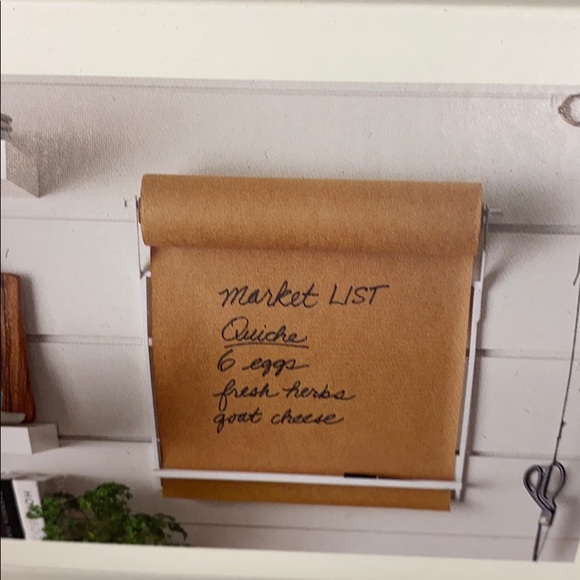 market LIST
Quiche
6 eggs
fresh herbs
goat cheese